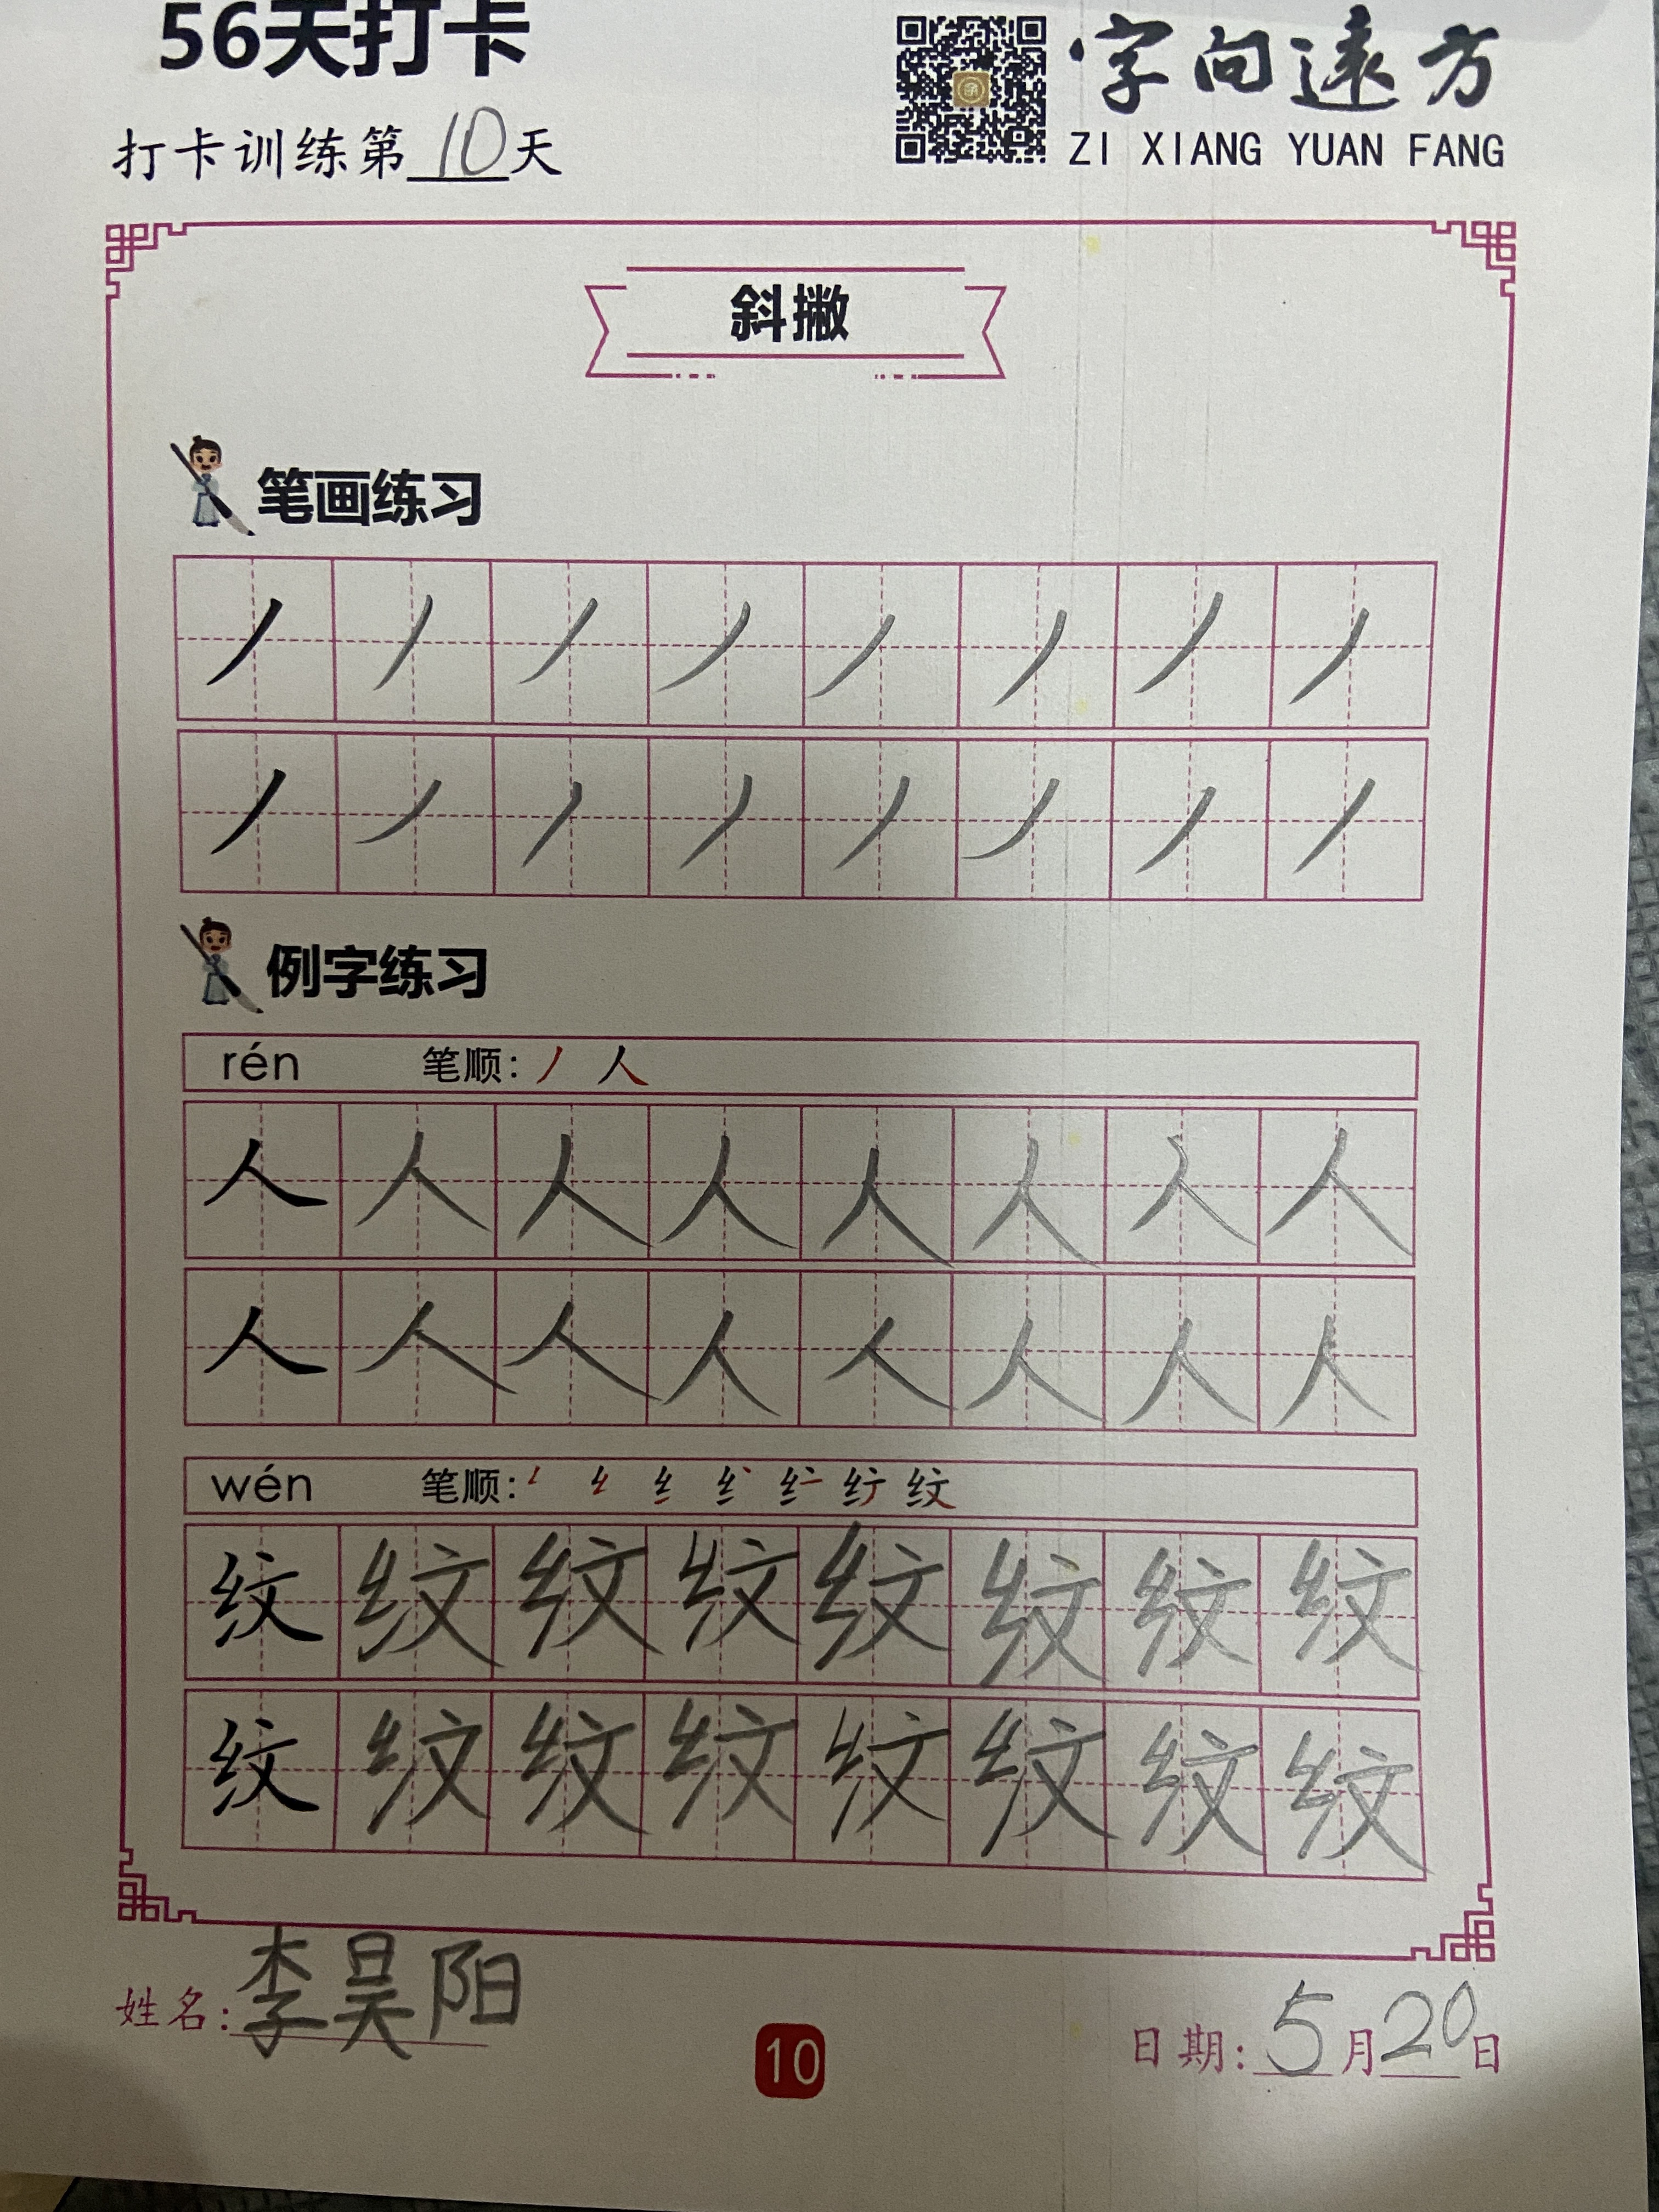 56天打卡
字向遠方
打卡训练第10天
ZI XIANG YUAN FANG
斜撇
笔画练习
丿 丿 丿 丿 丿 丿 丿 丿
丿 丿 丿 丿 丿 丿 丿 丿
例字练习
rén 笔顺: 丿 人
人 人 人 人 人 人 人 人
人 人 人 人 人 人 人 人
wén 笔顺: 纹
纹 纹 纹 纹 纹 纹 纹 纹
纹 纹 纹 纹 纹 纹 纹 纹
姓名: 李昊阳
日期: 5月20日
10